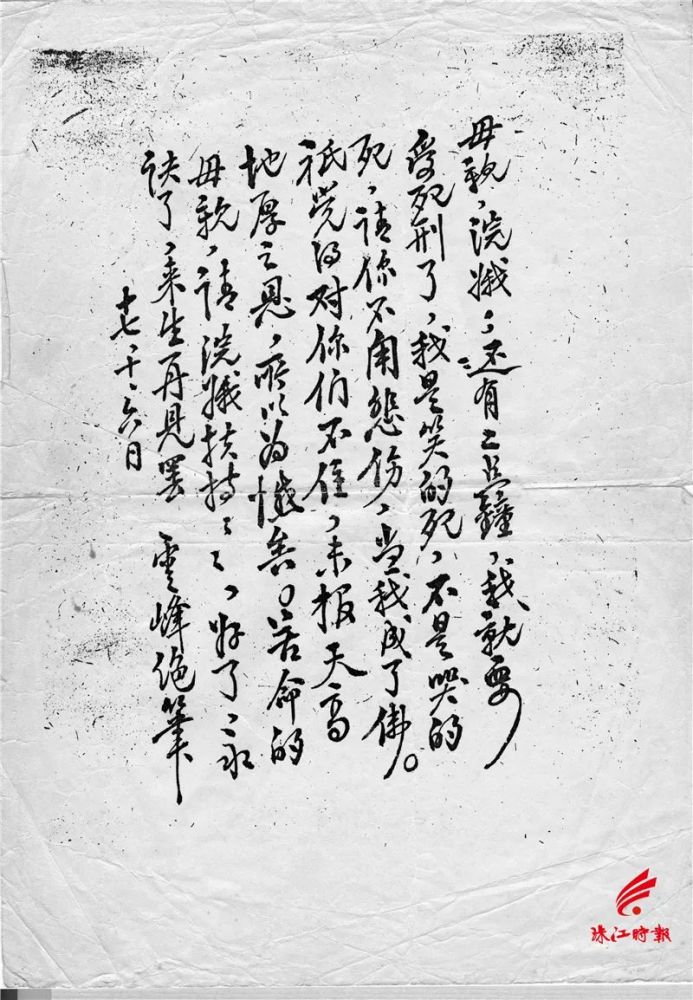 母親，浣娥，还有二点鐘，我就要
受死刑了，我是笑的死，不是哭的
死，请你不用悲伤，当我成了佛。
祇觉得对你们不住，未报天高
地厚之恩，所以为懺悔。苦命的
母親，请浣娥扶持々々，好了，永
诀了，来生再見罢 雲峰绝筆
十七，十，六月
珠江時報